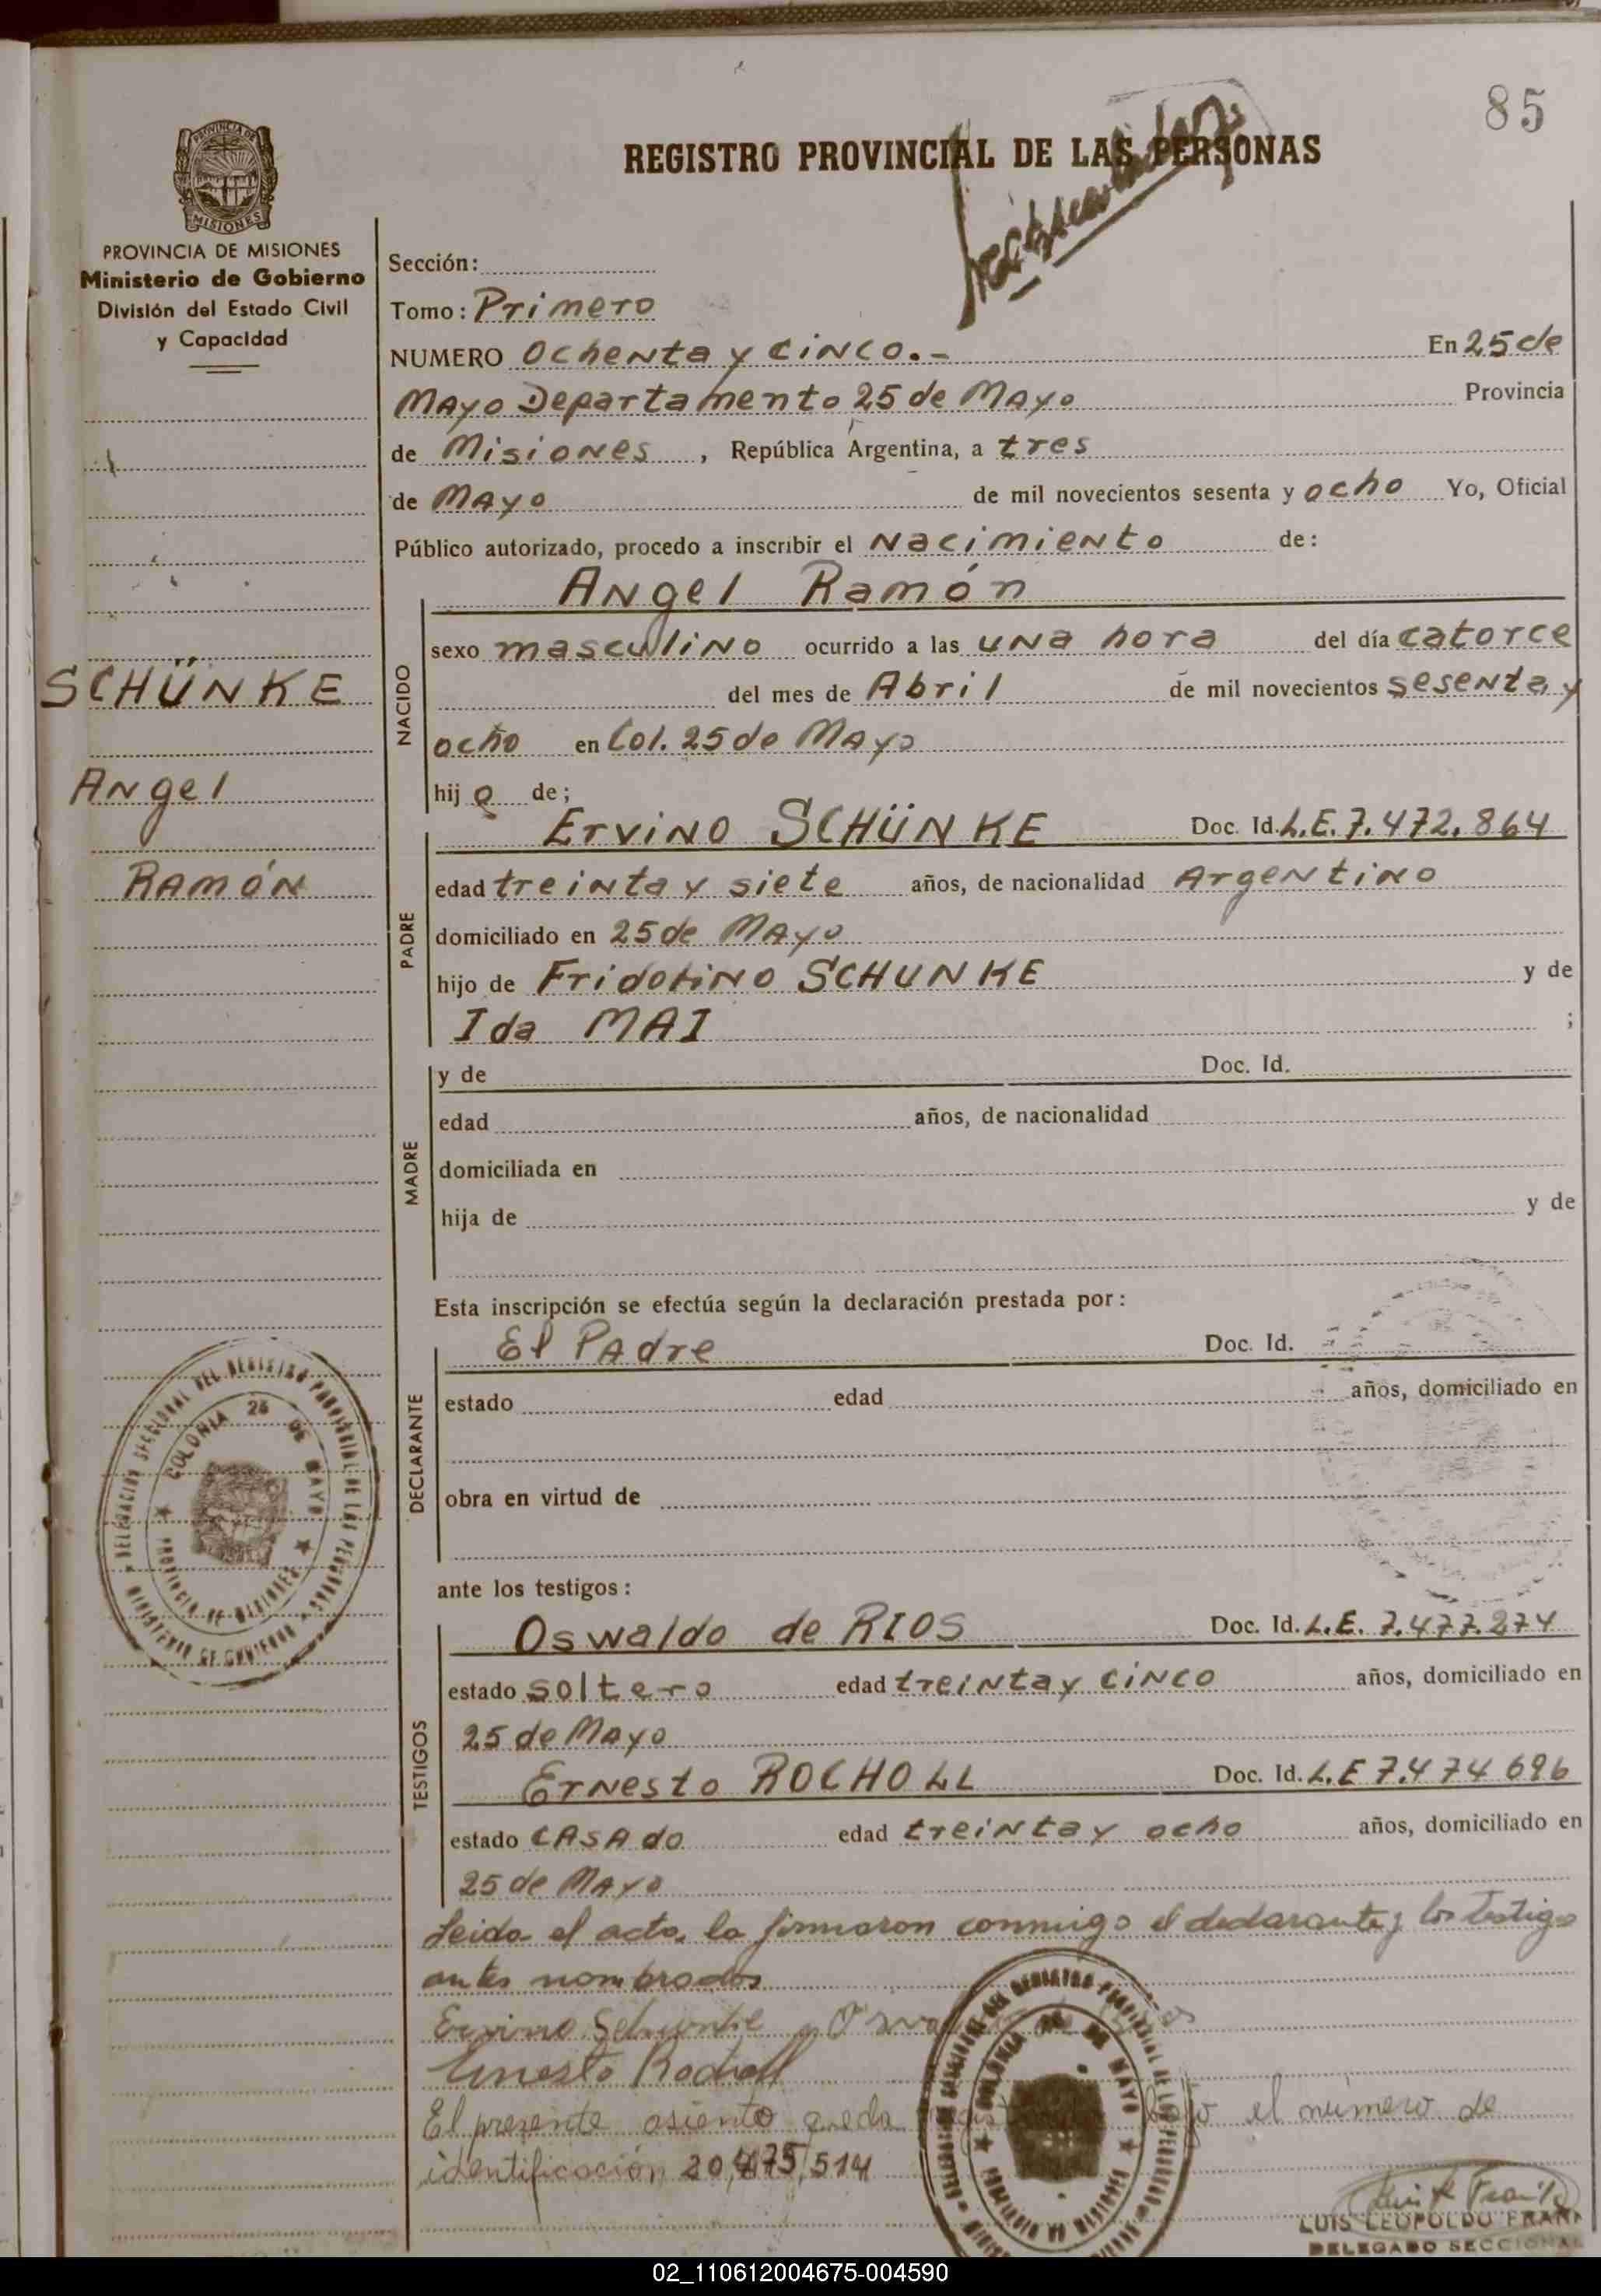 85
REGISTRO PROVINCIAL DE LAS PERSONAS
PROVINCIA DE MISIONES
MISIONES
PROVINCIA DE MISIONES
Ministerio de Gobierno
División del Estado Civil
y Capacidad
SCHÜNKE
Angel
Ramón
Sección:
Tomo: Primero
NUMERO Ochenta y cinco.- En 25 de
Mayo Departamento 25 de Mayo Provincia
de Misiones, República Argentina, a tres
de Mayo de mil novecientos sesenta y ocho Yo, Oficial
Público autorizado, procedo a inscribir el Nacimiento de:
NACIDO
Angel Ramón
sexo masculino ocurrido a las una hora del día catorce
del mes de Abril de mil novecientos sesenta y
ocho en Col. 25 de Mayo
hijo de;
PADRE
Ervino SCHÜNKE Doc. Id. L.E. 7.472.864
edad treinta y siete años, de nacionalidad Argentino
domiciliado en 25 de Mayo
hijo de Fridolino SCHUNKE y de
Ida MAI ;
MADRE
y de Doc. Id.
edad años, de nacionalidad
domiciliada en
hija de y de
Esta inscripción se efectúa según la declaración prestada por:
DECLARANTE
El Padre Doc. Id.
estado edad años, domiciliado en
obra en virtud de
DELEGACION SECCIONAL DEL REGISTRO PROVINCIAL DE LAS PERSONAS
COLONIA 25 DE MAYO
PROVINCIA DE MISIONES
MINISTERIO DE GOBIERNO
ante los testigos:
TESTIGOS
Oswaldo de RIOS Doc. Id. L.E. 7.477.274
estado soltero edad treinta y cinco años, domiciliado en
25 de Mayo
Ernesto ROCHOLL Doc. Id. L.E 7.474 696
estado casado edad treinta y ocho años, domiciliado en
25 de Mayo
Leida el acta, la firmaron conmigo el declarante y los testigos
antes nombrados
Ervino Schunke
Ernesto Rocholl
El presente asiento queda bajo el número de
identificación 20,475,514
LUIS LEOPOLDO FRAN
DELEGADO SECCIONAL
02_110612004675-004590